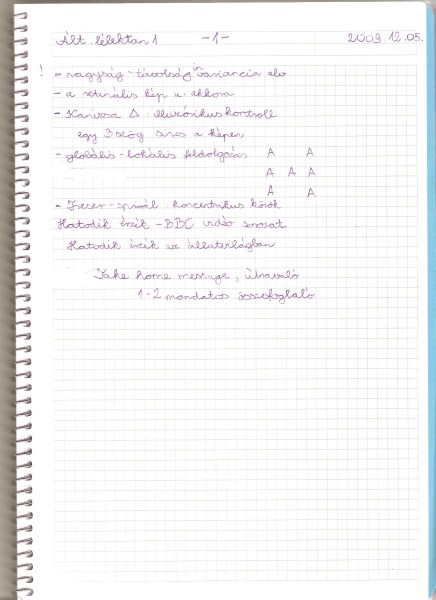 Ált. lélektan 1 -1- 2009.12.05.
! - nagyság - távolság invariancia elv
- a retinális kép u. akkora
- Kanizsa Δ illuzórikus kontroll
egy 3szög sincs a képen
- globális - lokális feldolgozás A A
A A A
A A
- Frezer - spirál koncentrikus körök
Hatodik érzék - BBC videó sorozat
Hatodik érzék az állatvilágban
Take home message, útravaló
1-2 mondatos összefoglaló